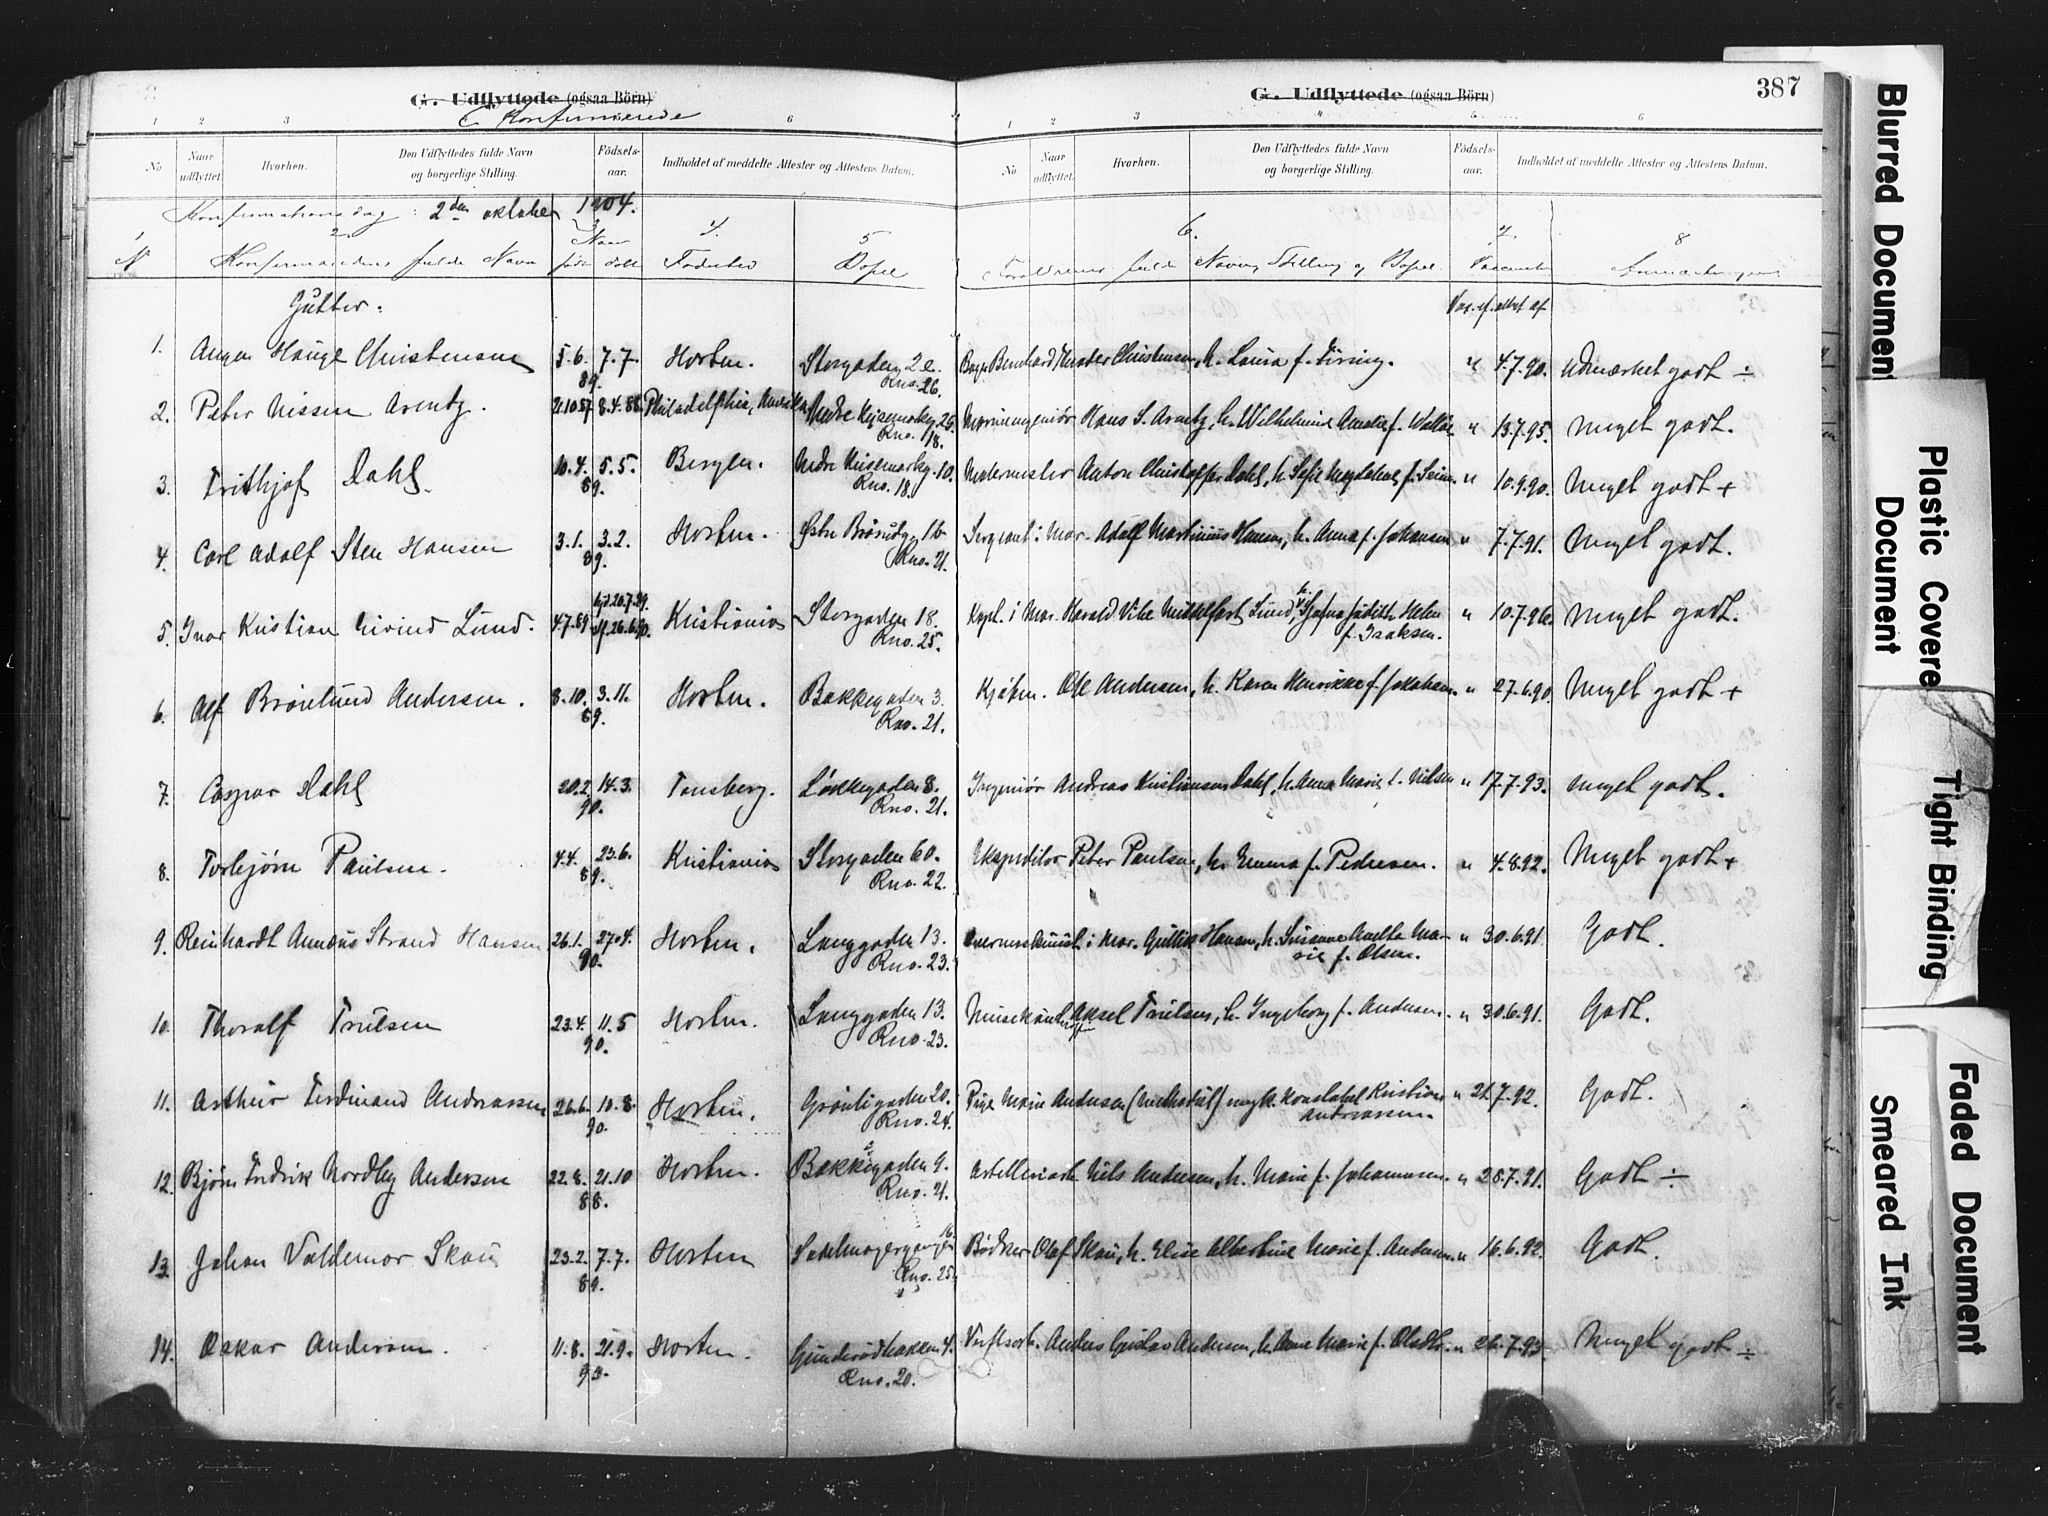 387
G. Udflyttede (ogsaa Börn)
G. Udflyttede (ogsaa Börn)
C Konfirmerede
1 2 3 6
1 2 3 4 5 6
No Naar udflyttet. Hvorhen. Den Udflyttedes fulde Navn og borgerlige Stilling. Födsels-aar. Indholdet af meddelte Attester og Attestens Datum.
No Naar udflyttet. Hvorhen. Den Udflyttedes fulde Navn og borgerlige Stilling. Födsels-aar. Indholdet af meddelte Attester og Attestens Datum.
Konfirmationsdag: 2den oktober 1904.
1 2 3 4. 5 6. 7. 8
N Konfirmandens fulde Navn Naar født døbt Fødested Bopæl Forældrenes fulde Navn, Stilling og Bopæl. Vaccineret Anmærkninger
Gutter: Vac. ef. attest af
1. Hauge Christensen 5.6. 7.7. Horten. Storgaden 2 e. Bernhard Christensen, h. Laura f. " 4.7.90. Udmærket godt ÷
89. Rno. 26.
2. Peter Nissen Arentz. 21.10.87 8.4.88. Philadelphia, Amerika Nedre Keisemarkg. 25. Marineingeniør Hans S. Arentz, h. Wilhelmine Amalie f. " 13.7.95. Meget godt.
Rno. 18.
3. Frithjof Dahl. 10.4. 5.5. Bergen. Nedre Keisemarkg. 10. Undermester Anton Christoffer Dahl, h. Sofie Magdalene f. " 10.9.90. Meget godt +
89. Rno. 18.
4. Carl Adolf Sten Hansen 3.1. 3.2. Horten. Østre Braarudg. 16 Sergeant i Mar. Adolf Martinius Hansen, h. Anna f. Johansen " 7.7.91. Meget godt.
89. Rno. 21.
5. Ivar Kristian Eivind Lund. 4.7.89 hjd. 20.7.89. Kristiania Storgaden 18. Kapt. i Mar. Harald Vibe Middelfart Lund, h. Judith Helen " 10.7.96. Meget godt.
26.6.90. Rno. 25. f. Isaksen.
6. Alf Brönlund Andersen. 8.10. 3.11. Horten. Bakkegaden 3. Ole Andersen, h. Karen Henrikke f. " 27.6.90. Meget godt +
89. Rno. 21.
7. Caspar Dahl 20.2. 14.3. Tønsberg. Løkkegaden 8. Ingeniør Andreas Kristiansen Dahl, h. Anna Marie f. Nilsen " 17.7.93. Meget godt.
90. Rno. 21.
8. Torbjørn Paulsen. 4.4. 23.6. Kristiania Storgaden 60. Ekspeditør Peter Paulsen, h. Emma f. Pedersen. " 4.8.92. Meget godt +
89. Rno. 22.
9. Reinhardt Strand Hansen 26.1. 27.4. Horten. Langgaden 13. i Mar. Gullik Hansen, h. Susanne Anette Ma- " 30.6.91. Godt.
90. Rno. 23. rie f. Olsen.
10. Thoralf Trulsen 23.4. 11.5 Horten. Langgaden 13. Aksel Trulsen, h. Ingeborg f. Andersen. " 30.6.91. Godt.
90. Rno. 23.
11. Arthur Ferdinand Andreassen 26.6. 10.8. Horten. Grønligaden 20. Pige Marie Andersen Kristian " 21.7.92. Godt.
90. Rno. 24. Andreassen.
12. Bjørn Fredrik Nordby Andersen 22.8. 21.10 Horten. Bakkegaden 9. Artilleriarb. Nils Andersen, h. Marie f. Johannesen. " 28.7.91. Godt ÷
88. Rno. 21.
13. Johan Valdemar Skau 23.2. 7.7. Horten Sadelmagergangen 16 Bødker Olaf Skau, h. Elise Albertine Marie f. Andersen " 16.6.92. Godt.
89. Rno. 25.
14. Oskar Andersen. 11.8. 21.9. Horten. Gunderødbakken 4. Verftsarb. Anders Gustav Andersen, h. Anne Marie f. " 26.7.93. Meget godt ÷
Rno. 20.
Blurred Document
Plastic Covere
Document
Tight Binding
Faded Document
Smeared Ink